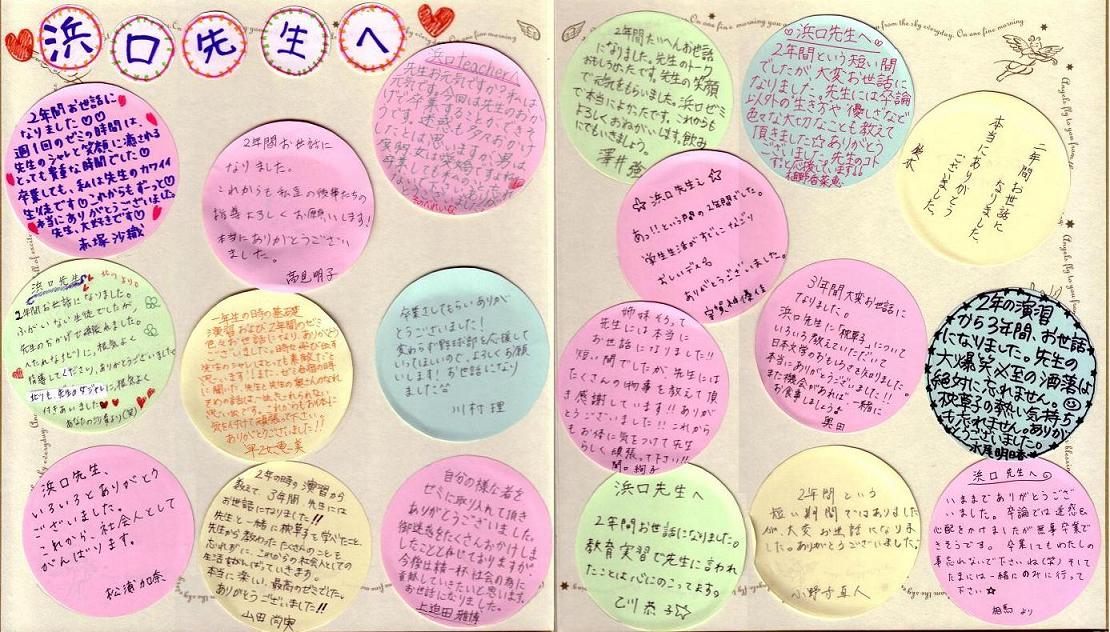 浜口先生へ
2年間お世話に
なりました♡♡
週1回のゼミの時間は、
先生のシャレと笑顔に癒される
とっても貴重な時間でした♡
卒業しても、私は先生のカワイイ
生徒です♡これからもずーっと♡
本当にありがとうございました。
先生、大好きです♡
赤塚沙織
2年間お世話に
なりました。
これからも私達の後輩たちの
指導よろしくお願いします!
本当にありがとうござい
ました。
高見明子
浜口teacherへ
先生お元気ですか?私は
元気です。今回は先生のおか
げで卒業することができそ
うです。迷惑も多々おかけ
したとは思いますが、
浜口先生
2年間お世話になりました。
ふがいない生徒でしたが、
先生のおかげで頑張れました。
指導してくださり、ありがとうございました
付きあいました
あなたの沙育より(笑)
一年生の時の基礎
演習および2年間のゼミ
色々お世話になり、ありがとう
ございました。
先生のシャレはとっても素敵だと
気を付けて頑張って下さい。
ありがとうございました!!
早乙女恵美
卒業させてもらいありが
とうございました!
変わらず野球部を応援して
いってほしいので、よろしくお願
いします!お世話になり
ました
川村理
浜口先生、
いろいろとありがとう
ございました。
これから、社会人として
がんばります。
松浦加奈
2年の時の演習から
数えて3年間、先生には
お世話になりました!!
先生と一緒に枕草子を学んだこと、
先生から教わったたくさんのことを
忘れずに、これからの社会人としての
生活をがんばっていきます。
本当に楽しい、最高のゼミでした。
ありがとうございました!!
山田
自分の様な者を
ゼミに取り入れて頂き
ありがとうございました。
御迷惑をたくさんおかけしま
したことと存じておりますが
今後は精一杯社会の為に
貢献していきたいと思います。
お世話になりました。
上迫田雅博
2年間たいへんお世話
になりました。先生のトーク
おもしろかったです。先生の笑顔
で元気をもらいました。浜口ゼミ
で本当によかったです。これからも
よろしくおねがいします。飲み
にでもいきましょう。
澤井強
浜口先生へ
2年間という短い間
でしたが、大変お世話に
なりました。先生には卒論
以外の生き方や優しさなど
色々な大切なことも教えて
頂きました☆ありがとう
ございました。先生のコト
ずっと応援しています!!
二年間お世話に
なりました。
本当にありがとう
ございました。
☆浜口先生え☆
あっ!!という間の2年間でした。
学生生活がすでになつかし
ありがとうございました。
姉妹そろって
先生には本当に
お世話になりました!!
短い間でしたが先生には
たくさんの物事を教えて頂
き感謝しています!!ありが
とうございました!!これから
もお体に気をつけて先生
らしく頑張って下さい!!
関 絢子
3年間大変お世話に
なりました。
浜口先生に「枕草子」について
いろいろ教えていただいて
日本文学のおもしろさを知りました
本当にありがとうございました!!
また機会があれば一緒に
お食事しましょう
奥田
2年の演習
から3年間、お世話
になりました。先生の
大爆笑必至の洒落は
絶対に忘れません。
枕草子の熱い気持ち
も忘れません。ありが
とうございました。
浜口先生へ
2年間お世話になりました。
教育実習で先生に言われ
たことは心にのこってます。
乙川恭子☆
2年間という
短い期間ではありました
が、大変お世話になりま
した。ありがとうございました。
小野寺直人
浜口先生へ
いままでありがとうござ
いました。卒論では迷惑&
心配をかけましたが無事卒業で
きそうです。卒業してもわたしの
事忘れないで下さいね(笑)そして
たまには一緒にのみに行って
下さい☆
相馬より